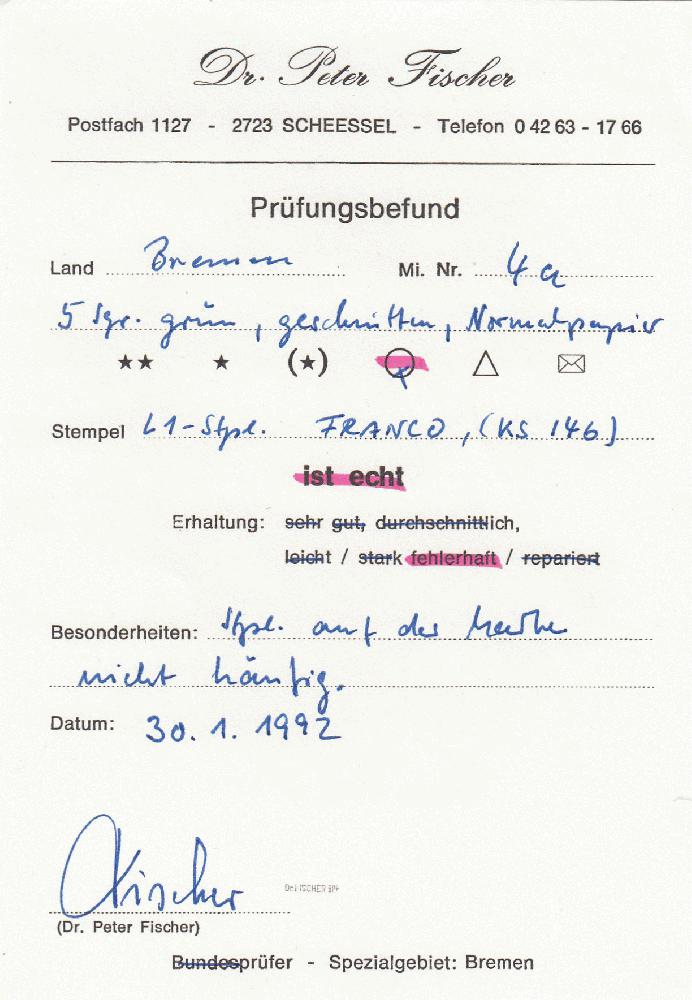 Dr. Peter Fischer
Postfach 1127 - 2723 SCHEESSEL - Telefon 0 42 63 - 17 66
Prüfungsbefund
Land Bremen Mi. Nr. 4a
5 Sgr. grün, geschnitten, Normalpapier
★★ ★ (★)
Stempel L1-Stpl. FRANCO, (KS 146)
ist echt
Erhaltung: sehr gut, durchschnittlich,
leicht / stark fehlerhaft / repariert
Besonderheiten: Stpl. auf der Marke
nicht häufig.
Datum: 30. 1. 1992
Fischer
(Dr. Peter Fischer)
Bundesprüfer - Spezialgebiet: Bremen